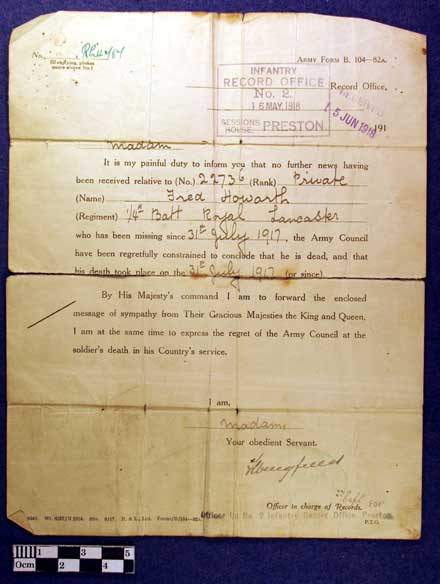 No.
(If replying, please quote above No.)
ARMY FORM B. 104—82A.
INFANTRY
RECORD OFFICE
No. 2.
16 MAY. 1918
SESSIONS HOUSE, PRESTON.
Record Office,
15 JUN 1918
191
Madam
It is my painful duty to inform you that no further news having
been received relative to (No.) 22736 (Rank) Private
(Name) Fred Howarth
(Regiment) 1/4th Batt Royal Lancaster
who has been missing since 31st July 1917, the Army Council
have been regretfully constrained to conclude that he is dead, and that
his death took place on the 31st July 1917 (or since).
By His Majesty's command I am to forward the enclosed
message of sympathy from Their Gracious Majesties the King and Queen.
I am at the same time to express the regret of the Army Council at the
soldier's death in his Country's service.
I am,
Madam,
Your obedient Servant.
Capt. For
Officer in charge of Records.
Officer No. 2 Infantry Record Office, Preston
P.T.O.
1 3 5
0cm 2 4